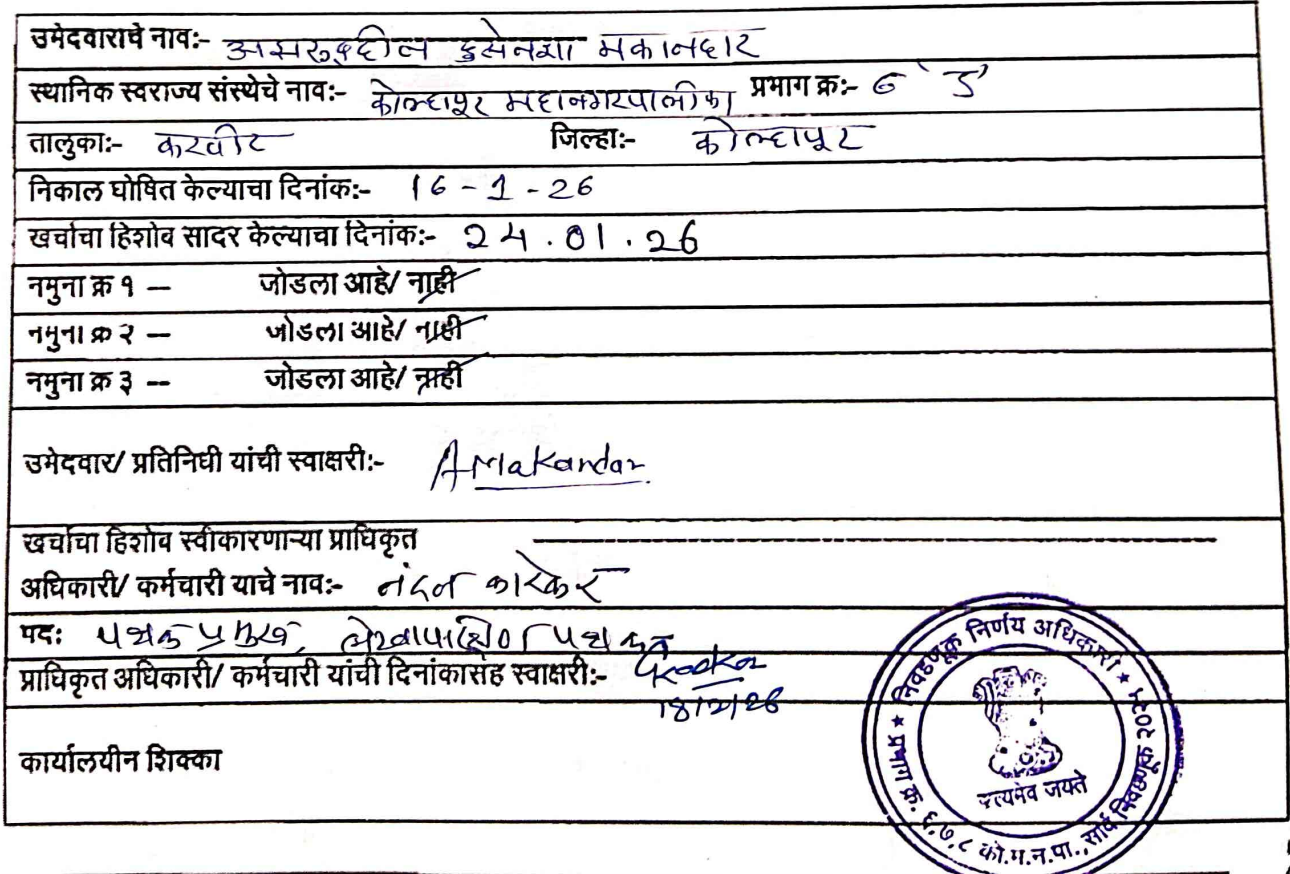 उमेदवाराचे नाव:- अमरुद्दीन हुसेनशा मकानदार
स्थानिक स्वराज्य संस्थेचे नाव:- कोल्हापूर महानगरपालीका प्रभाग क्र:- ७ 'ड'
तालुका:- करवीर जिल्हा:- कोल्हापूर
निकाल घोषित केल्याचा दिनांक:- 16 - 1 - 26
खर्चाचा हिशोब सादर केल्याचा दिनांक:- 24 . 01 . 26
नमुना क्र १ -- जोडला आहे/ नाही
नमुना क्र २ -- जोडला आहे/ नाही
नमुना क्र ३ -- जोडला आहे/ नाही
उमेदवार/ प्रतिनिधी यांची स्वाक्षरी:- AMakandar
खर्चाचा हिशोब स्वीकारणाऱ्या प्राधिकृत
अधिकारी/ कर्मचारी याचे नाव:- नंदन कारेकर
पद: पथक प्रमुख, लेखापरिक्षण पथक
प्राधिकृत अधिकारी/ कर्मचारी यांची दिनांकासह स्वाक्षरी:-
18/2/26
कार्यालयीन शिक्का
★ निवडणूक निर्णय अधिकारी ★
प्रभाग क्र. ६,७,८ को.म.न.पा., सार्व निवडणूक २०२५
सत्यमेव जयते